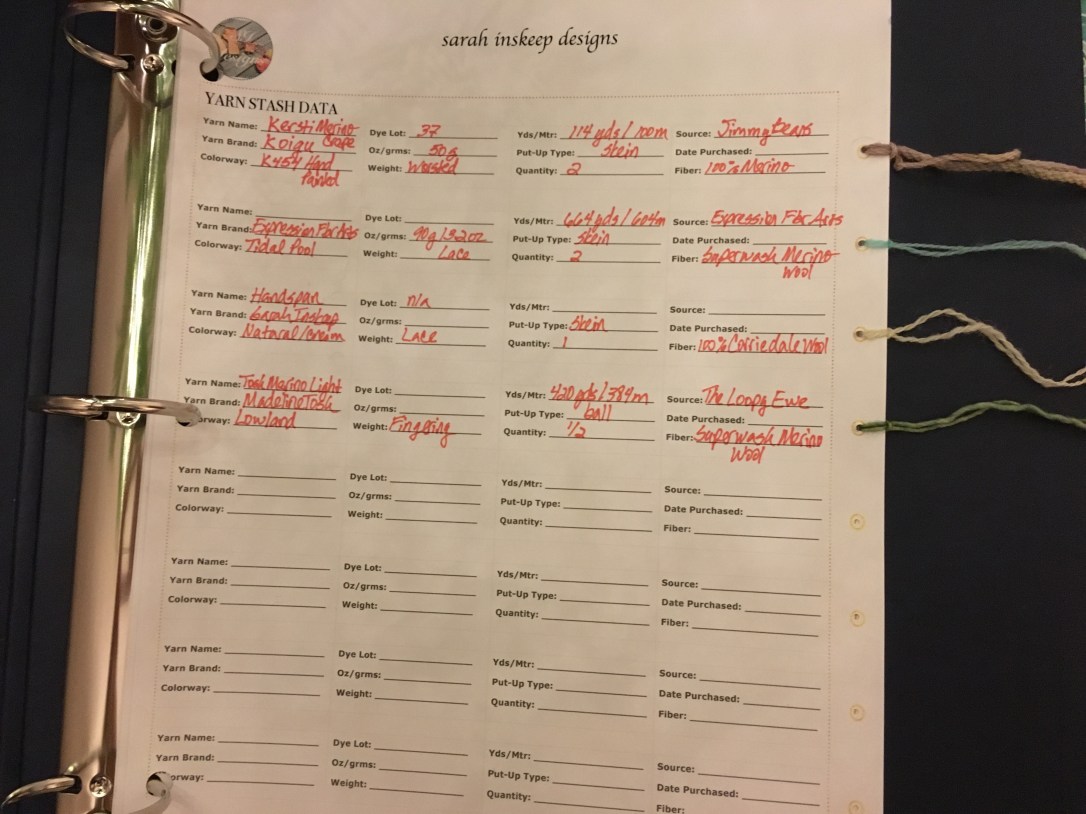 sarah inskeep designs
YARN STASH DATA
Yarn Name: Kersti Merino Crepe Dye Lot: 37 Yds/Mtr: 114 yds/100m Source: Jimmy Beans
Yarn Brand: Koigu Oz/grms: 50g Put-Up Type: Skein Date Purchased:
Colorway: K454 Hand Painted Weight: Worsted Quantity: 2 Fiber: 100% Merino
Yarn Name: Dye Lot: Yds/Mtr: 664 yds/604m Source: Expression Fiber Arts
Yarn Brand: Expression Fbr Arts Oz/grms: 90g/3.2oz Put-Up Type: Skein Date Purchased:
Colorway: Tidal Pool Weight: Lace Quantity: 2 Fiber: Superwash Merino Wool
Yarn Name: Handspun Dye Lot: n/a Yds/Mtr: Source:
Yarn Brand: Sarah Inskeep Oz/grms: Put-Up Type: Skein Date Purchased:
Colorway: Natural/Cream Weight: Lace Quantity: 1 Fiber: 100% Corriedale Wool
Yarn Name: Tosh Merino Light Dye Lot: Yds/Mtr: 420 yds/384m Source: The Loopy Ewe
Yarn Brand: MadelineTosh Oz/grms: Put-Up Type: ball Date Purchased:
orway: Lowland Weight: Fingering Quantity: 1/2 Fiber: Superwash Merino Wool
Yarn Name: Dye Lot: Yds/Mtr: Source:
Yarn Brand: Oz/grms: Put-Up Type: Date Purchased:
Colorway: Weight: Quantity: Fiber:
Yarn Name: Dye Lot: Yds/Mtr: Source:
Yarn Brand: Oz/grms: Put-Up Type: Date Purchased:
Colorway: Weight: Quantity: Fiber:
Yarn Name: Dye Lot: Yds/Mtr: Source:
Yarn Brand: Oz/grms: Put-Up Type: Date Purchased:
Colorway: Weight: Quantity: Fiber:
Yarn Name: Dye Lot: Yds/Mtr: Source:
Yarn Brand: Oz/grms: Put-Up Type: Date Purchased:
orway: Weight: Quantity: Fiber: